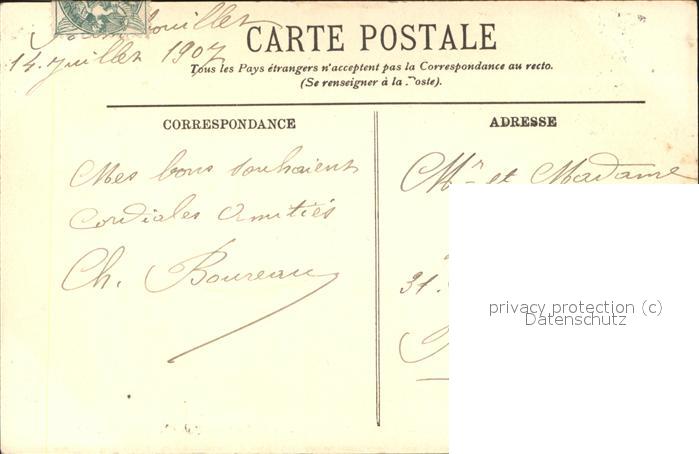 Rambouillet
14. Juillet 1907
CARTE POSTALE
Tous les Pays étrangers n'acceptent pas la Correspondance au recto.
(Se renseigner à la Poste).
CORRESPONDANCE
Mes bons souhaient
Cordiales Amitiés
Ch. Boureau
ADRESSE
Mr et Madame
31.
privacy protection (c)
Datenschutz